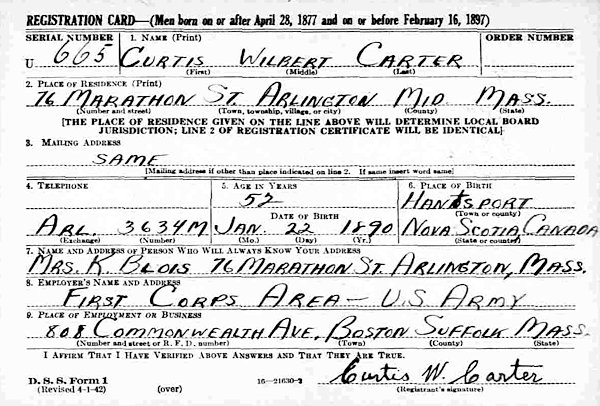 REGISTRATION CARD—(Men born on or after April 28, 1877 and on or before February 16, 1897)
SERIAL NUMBER 1. NAME (Print) ORDER NUMBER
U 665 CURTIS WILBERT CARTER
(First) (Middle) (Last)
2. PLACE OF RESIDENCE (Print)
76 MARATHON ST. ARLINGTON MID. MASS.
(Number and street) (Town, township, village, or city) (County) (State)
[THE PLACE OF RESIDENCE GIVEN ON THE LINE ABOVE WILL DETERMINE LOCAL BOARD
JURISDICTION; LINE 2 OF REGISTRATION CERTIFICATE WILL BE IDENTICAL]
3. MAILING ADDRESS
SAME
[Mailing address if other than place indicated on line 2. If same insert word same]
4. TELEPHONE 5. AGE IN YEARS 6. PLACE OF BIRTH
52 HANTSPORT
DATE OF BIRTH (Town or county)
ARL. 3634M JAN. 22 1890 NOVA SCOTIA, CANADA
(Exchange) (Number) (Mo.) (Day) (Yr.) (State or country)
7. NAME AND ADDRESS OF PERSON WHO WILL ALWAYS KNOW YOUR ADDRESS
MRS. K. BLOIS 76 MARATHON ST. ARLINGTON, MASS.
8. EMPLOYER'S NAME AND ADDRESS
FIRST CORPS AREA — U.S. ARMY
9. PLACE OF EMPLOYMENT OR BUSINESS
808 COMMONWEALTH AVE, BOSTON SUFFOLK MASS.
(Number and street or R. F. D. number) (Town) (County) (State)
I AFFIRM THAT I HAVE VERIFIED ABOVE ANSWERS AND THAT THEY ARE TRUE.
Curtis W. Carter
D. S. S. Form 1 16—21630-2 (Registrant's signature)
(Revised 4-1-42) (over)